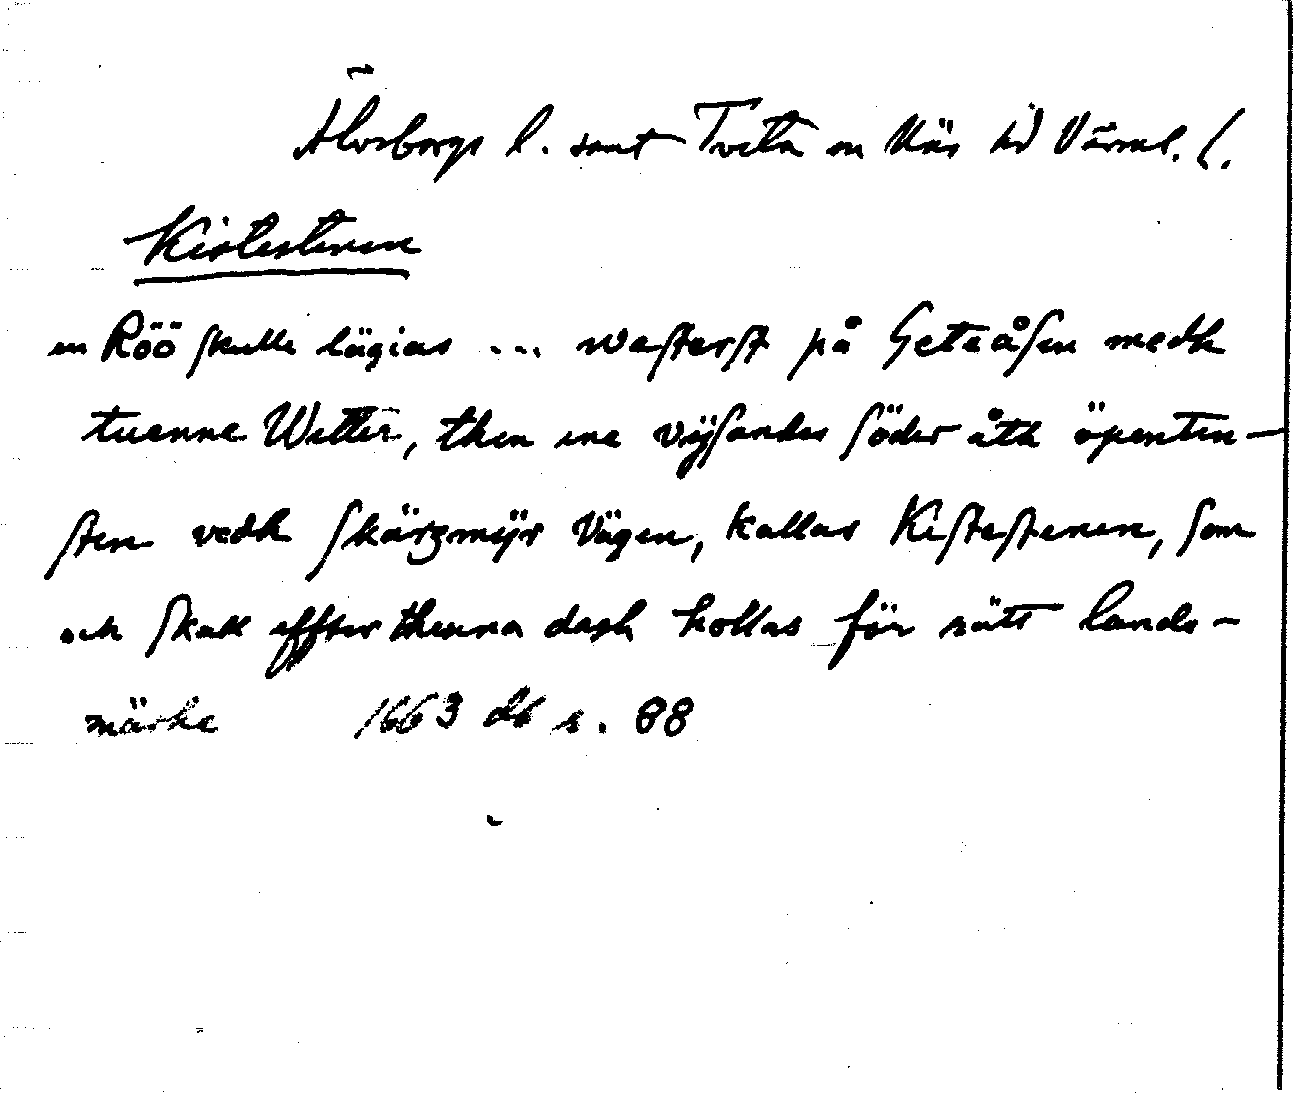 Älvsborgs l. samt Tveta o Näs hd Värml. l.
Kistestenen
en Röö skulle lägias ... wasterst på Geteåsen medh
tuenne Witter, then ene vijsandes söder åth öpenten-
sten vedh skärgmÿr Vägen, kallas Kistestenen, som
och skall effter thenna dagh hollas för rätt lands-
märke 1663 db s. 88